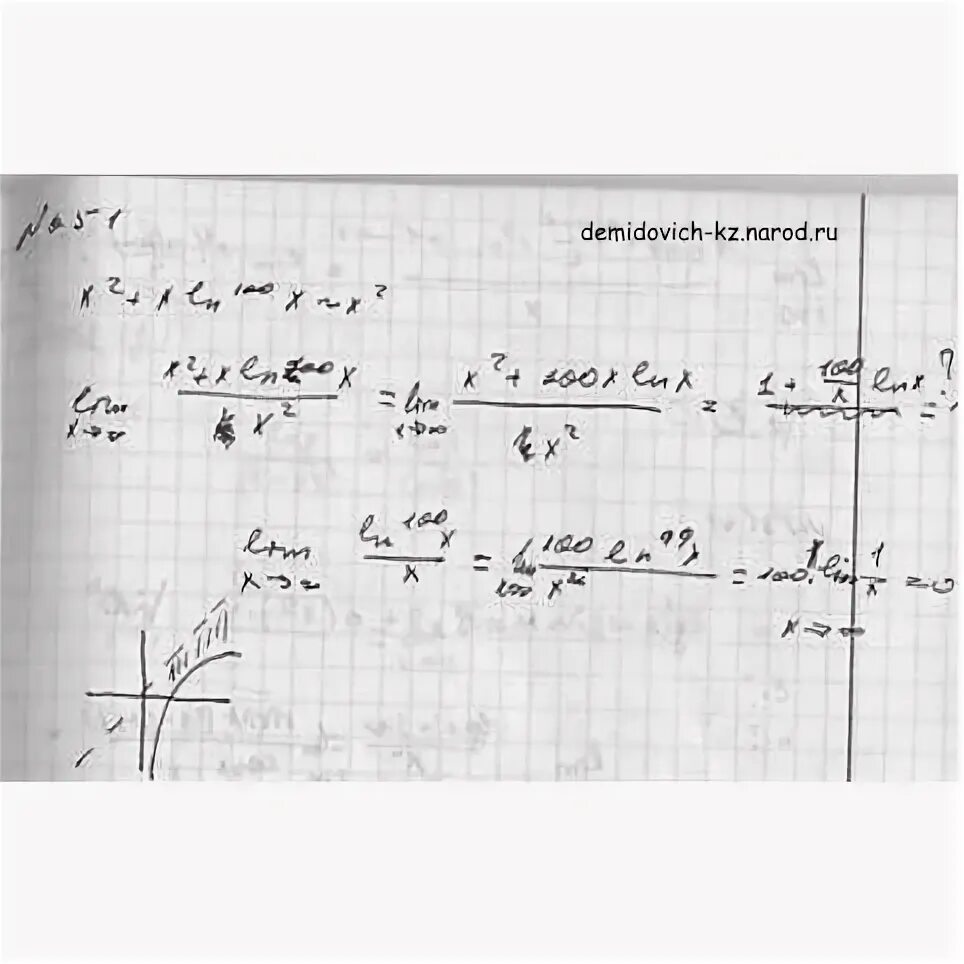 № 651
demidovich-kz.narod.ru
x² + x ln¹⁰⁰ x ~ x²
lim x→∞ (x² + x ln¹⁰⁰ x) / x² = lim x→∞ (x² + 100x ln x) / x² = 1 + 100/x ln x = ?
lim x→∞ ln¹⁰⁰ x / x = lim x→∞ 100 ln⁹⁹ x / x = 100! lim x→∞ 1/x = 0